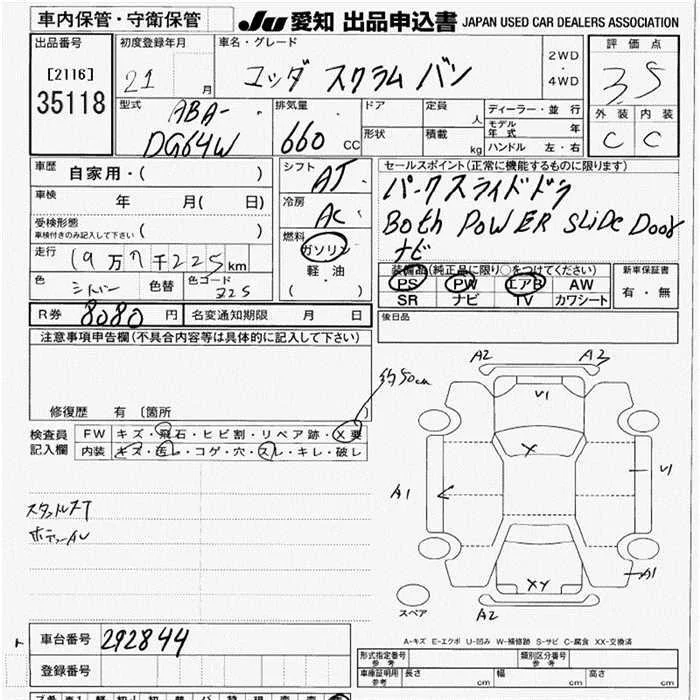 車内保管・守衛保管
JU 愛知 出品申込書 JAPAN USED CAR DEALERS ASSOCIATION
出品番号
[2116]
35118
初度登録年月
21 月
車名・グレード
スクラム バン
2WD
・
4WD
評価点
3.5
外装 内装
C C
型式
ABA-
DG64W
排気量
660 CC
ドア
形状
定員
人
積載
kg
ディーラー・並行
モデル
年式 年
ハンドル 左・右
車歴
自家用・( )
車検
年 月( 日)
受検形態
車検付きのみ記入して下さい ( )
走行
19万7千225km
色
シルバー
色替
色コード
Z2S
シフト
AT
冷房
AC
燃料
ガソリン
軽油
( )
セールスポイント(正常に機能するものに限ります)
パークスライドドア
Both POWER SLiDe Door
ナビ
装備品(純正品に限り○をつけてください)
PS PW エアB AW
SR ナビ TV カワシート
新車保証書
有・無
R券 8080 円
名変通知期限 月 日
後日品
注意事項申告欄(不具合内容等は具体的に記入して下さい)
修復歴 有 〔箇所 〕
約50cm
検査員
記入欄
FW キズ・飛石・ヒビ割・リペア跡・X要
内装 キズ・汚レ・コゲ・穴・スレ・キレ・破レ
A2 A3
V1
X
A1
V1
A1
XY
A2
スペア
A-キズ E-エクボ U-凹み W-補修跡 S-サビ C-腐食 XX-交換済
車台番号 292844
登録番号
形式指定番号
参考
類別区分番号
参考
車庫証明用
参考
長さ cm 幅 cm 高さ cm